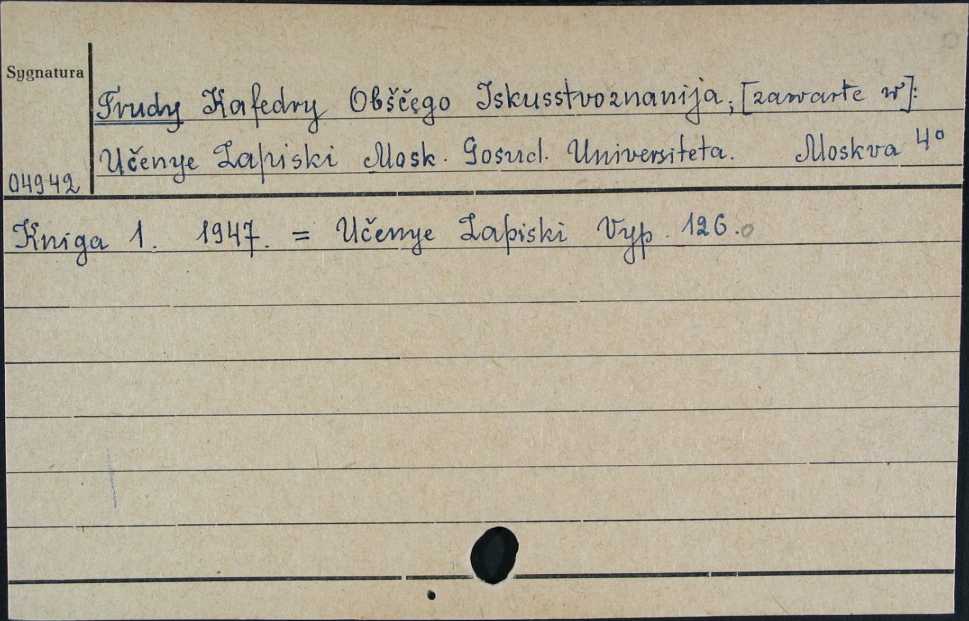 Sygnatura
Trudy Kafedry Obščego Iskusstvoznanija, [zawarte w]:
Učenye Zapiski Mosk. Gosud. Universiteta. Moskva 4°
04942
Kniga 1. 1947. = Učenye Zapiski Vyp. 126.